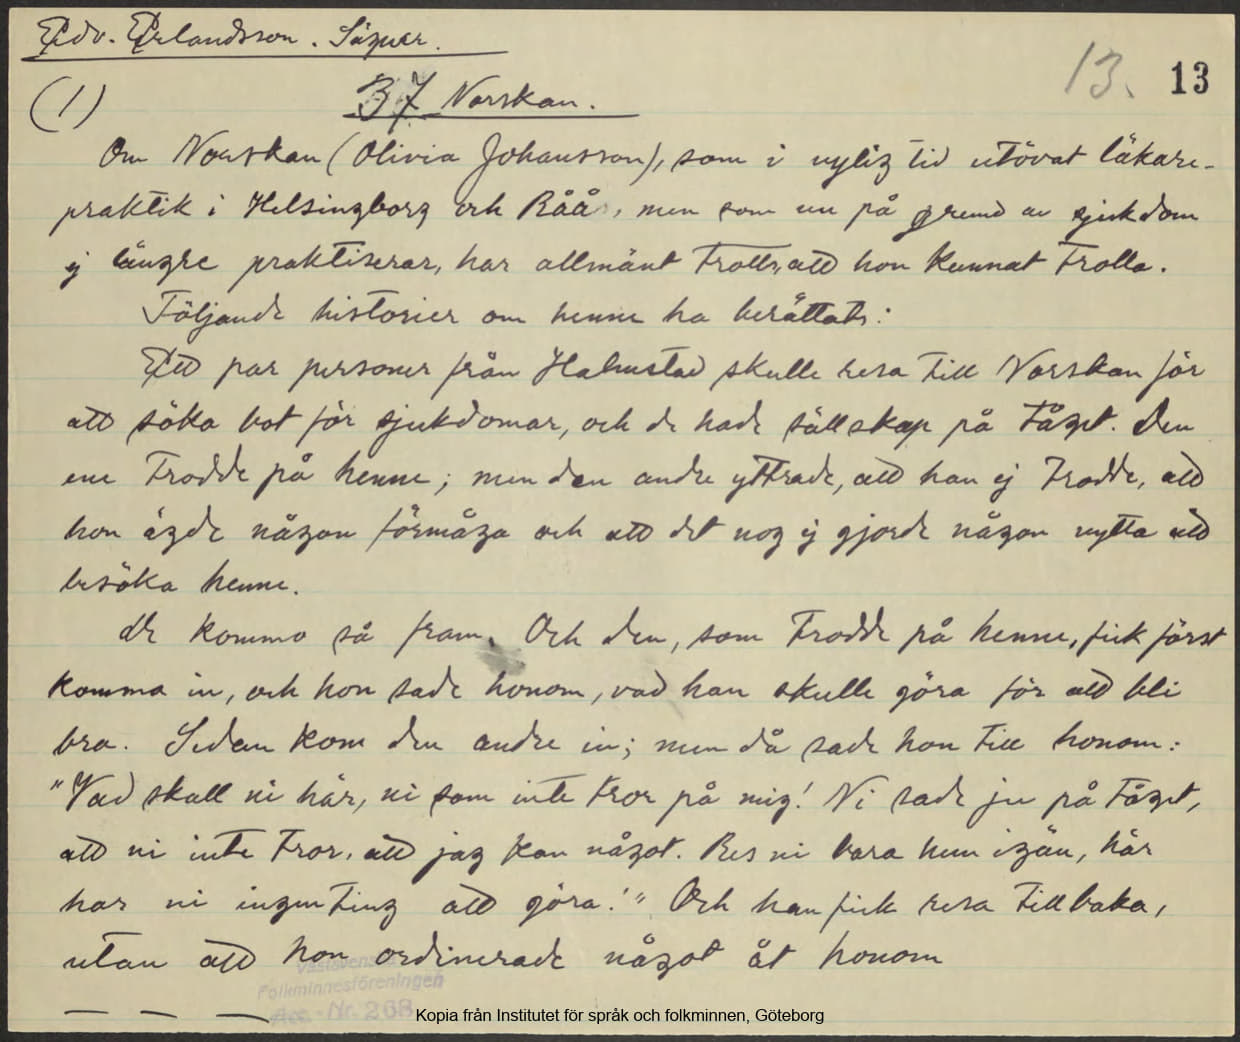 Edv. Erlandsson. Sägner.
13. 13
(1) 37 Norskan.
Om Norskan (Olivia Johansson), som i nylig tid utövat läkare-
praktik i Helsingborg och Råå, men som nu på grund av sjukdom
ej längre praktiserar, har allmänt trotts, att hon kunnat trolla.
Följande historier om henne ha berättats:
Ett par personer från Halmstad skulle resa till Norskan för
att söka bot för sjukdomar, och de hade sällskap på tåget. Den
ene trodde på henne; men den andre yttrade, att han ej trodde, att
hon ägde någon förmåga och att det nog ej gjorde någon nytta att
besöka henne.
De kommo så fram. Och den, som trodde på henne, fick först
komma in, och hon sade honom, vad han skulle göra för att bli
bra. Sedan kom den andre in; men då sade hon till honom:
"Vad skall ni här, ni som inte tror på mig! Ni sade ju på tåget,
att ni inte tror, att jag kan något. Res ni bara hem igän, här
har ni ingenting att göra!" Och han fick resa tillbaka,
utan att hon ordinerade något åt honom
Västsvenska
Folkminnesföreningen
Acc. Nr. 268
Kopia från Institutet för språk och folkminnen, Göteborg